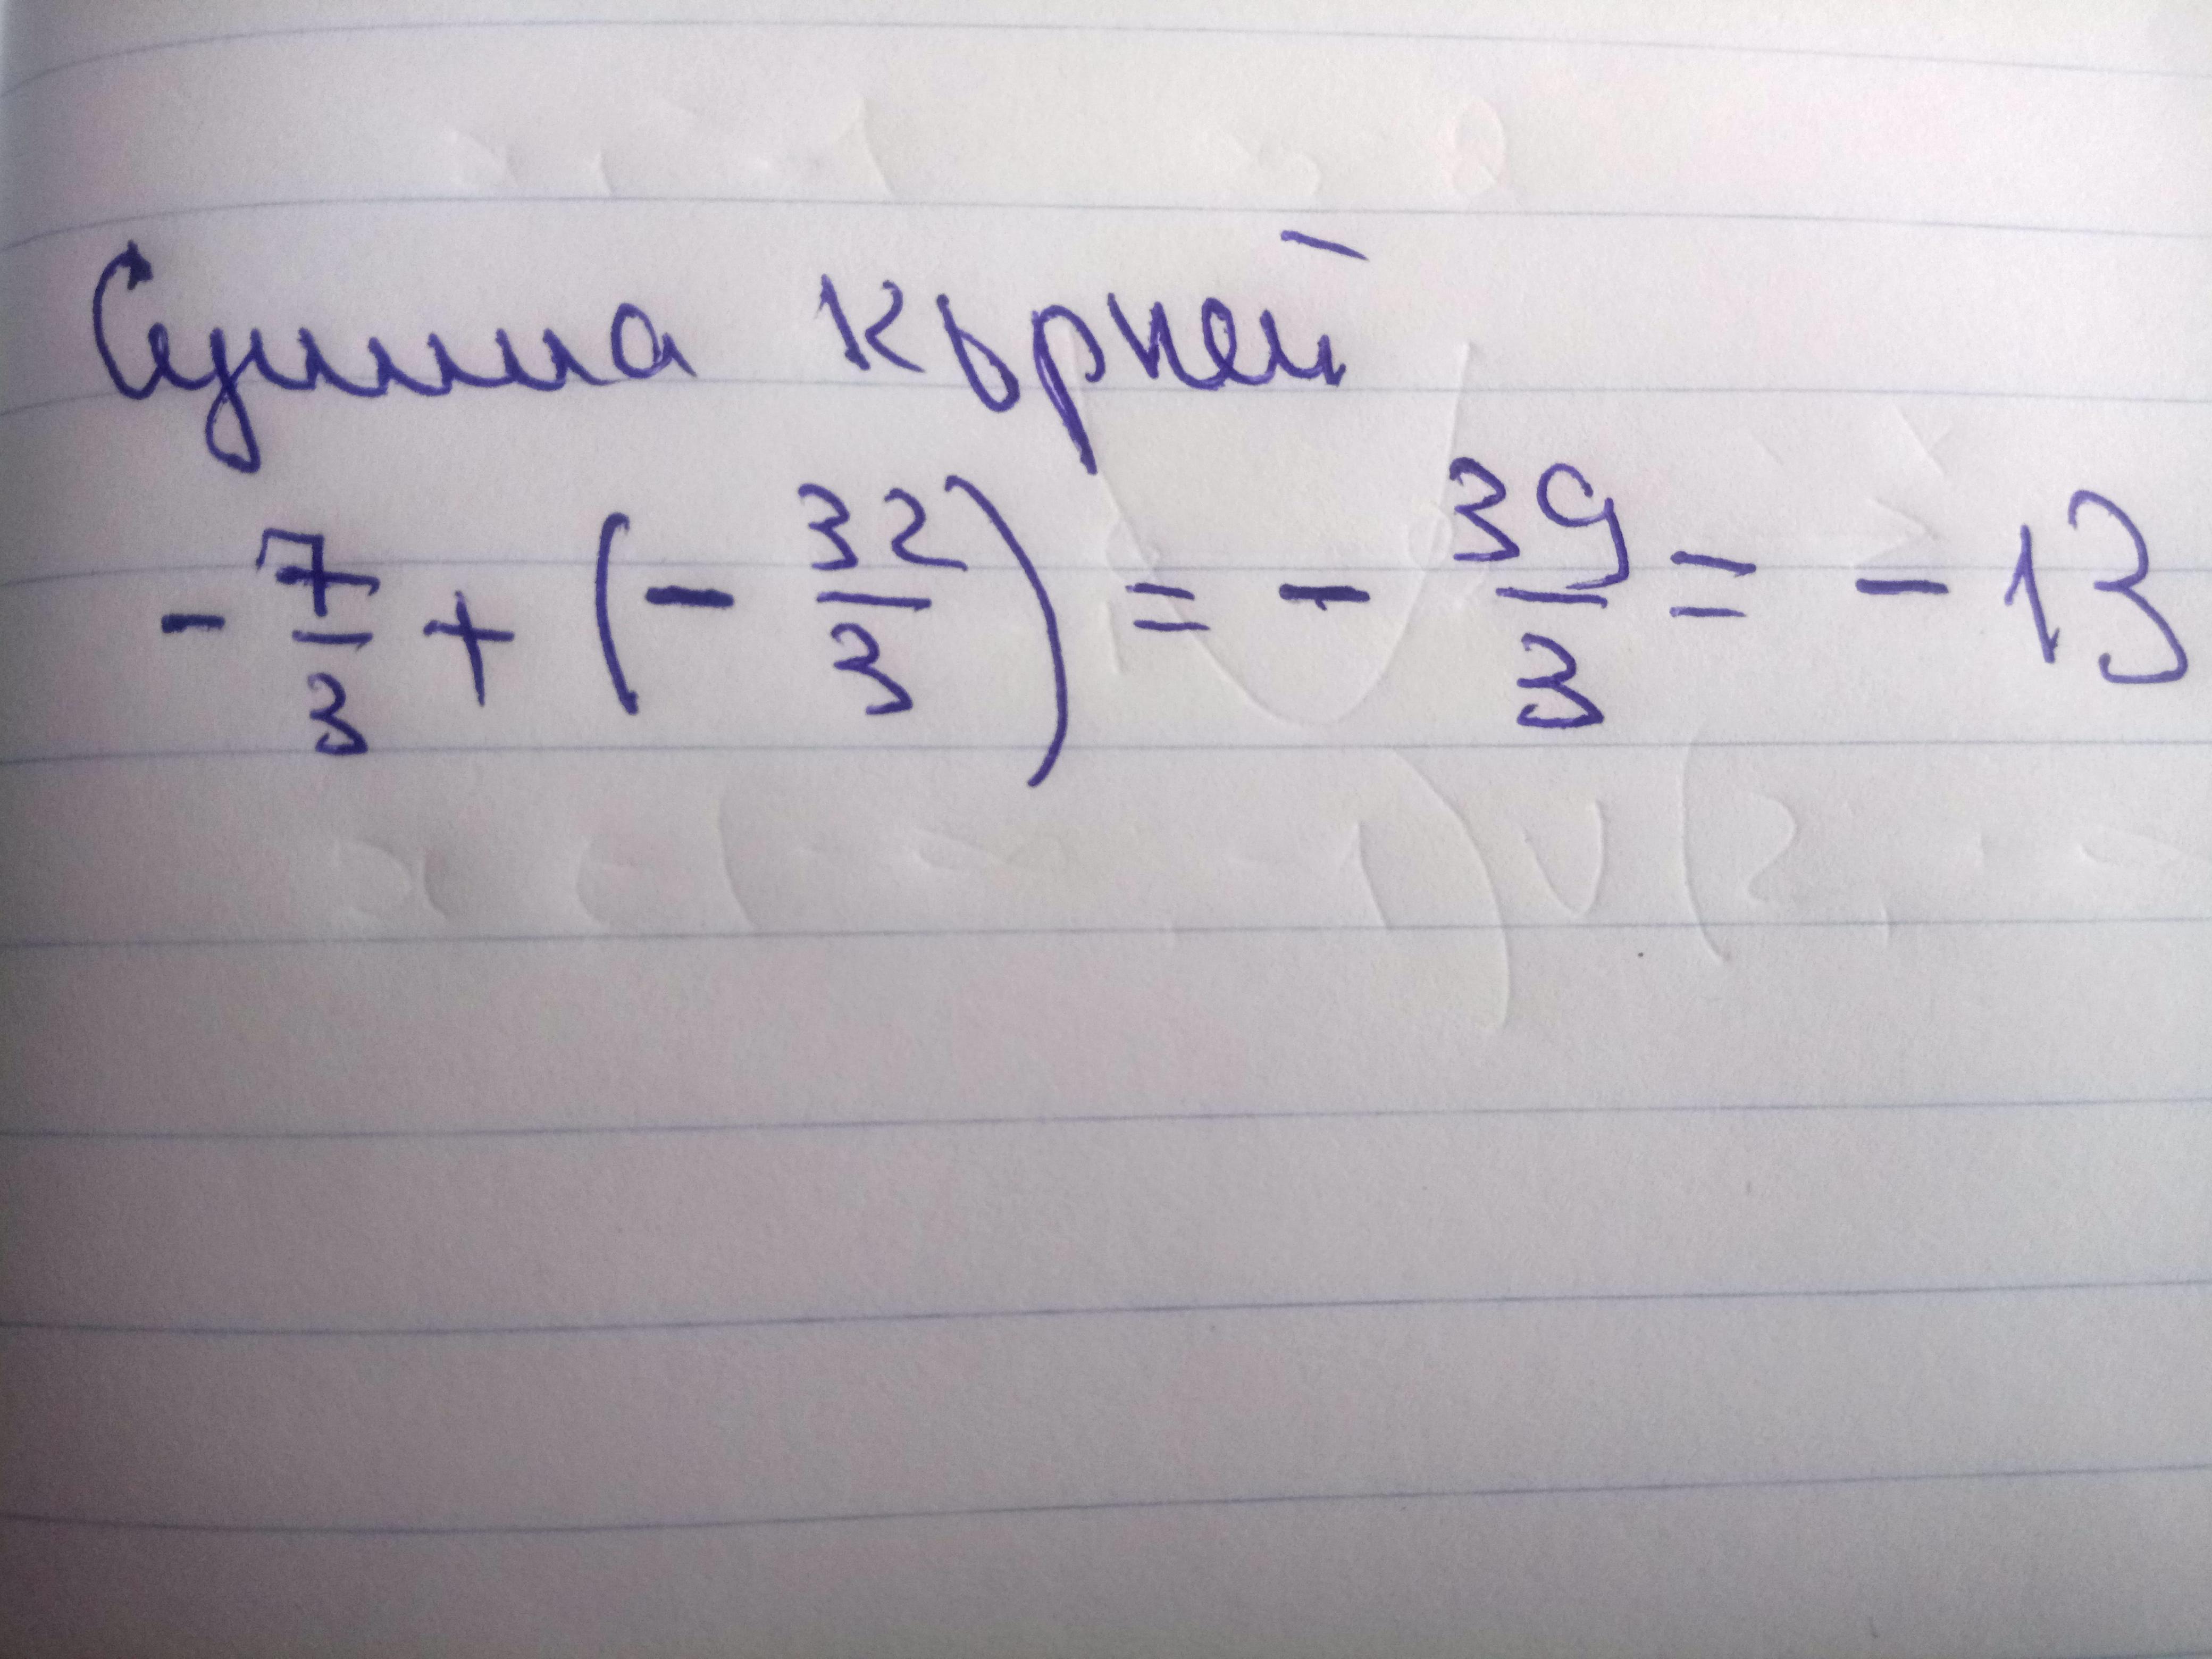 Сумма кърней
- 7/3 + (- 32/3) = - 39/3 = - 13